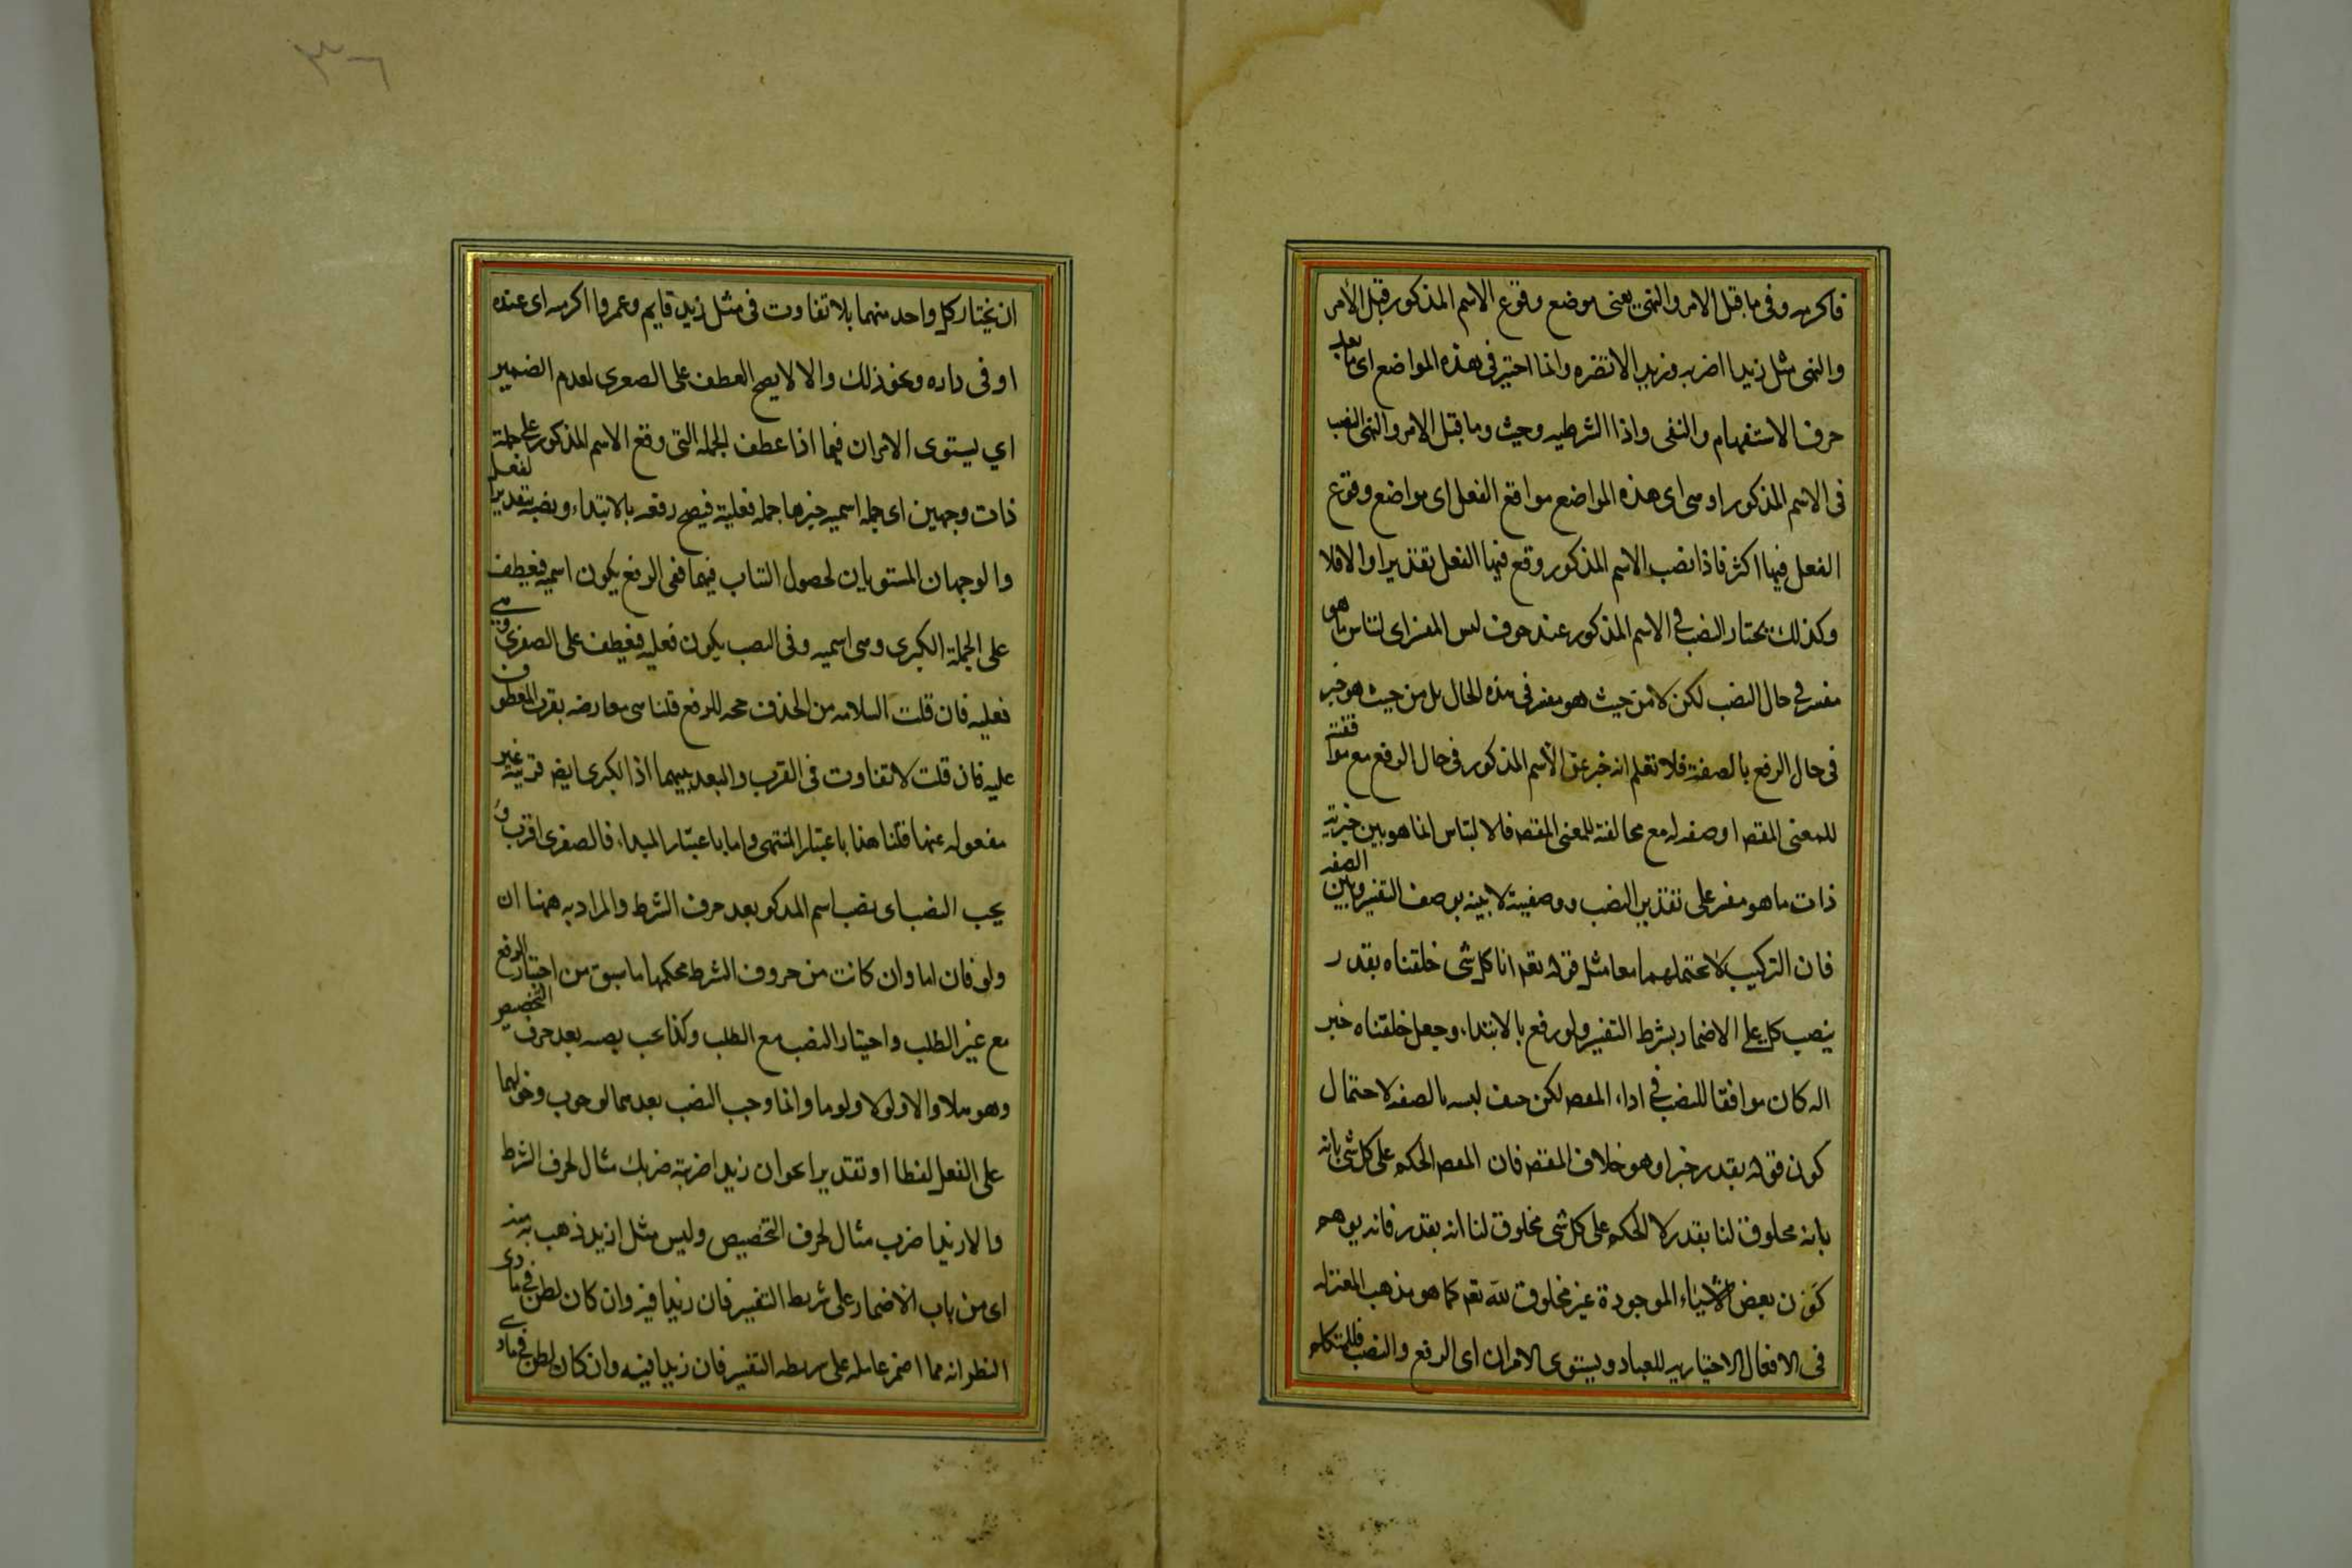 فاكرمه وفى ما قبل الامر والنهى يعنى موضع وقوع الاسم المذكور قبل الامر
والنهى مثل زيدا اضربه وزيدا لا تضربه وانما اختير فى هذه المواضع اى ما بعد
حرف الاستفهام والنفى واذا الشرطيه وحيث وما قبل الامر والنهى النصب
فى الاسم المذكور اذ هى اى هذه المواضع مواقع الفعل اى مواضع وقوع
الفعل فيها اكثر فاذا نصب الاسم المذكور وقع فيها الفعل تقديرا والا فلا
وكذلك يختار النصب فى الاسم المذكور عند خوف لبس المفسر اى التباس ما هو
مفسر فى حال النصب لكن لا من حيث هو مفسر فى هذه الحال بل من حيث هو خبر
فى حال الرفع بالصفة فلا تعلم انه خبر عن الاسم المذكور فى حال الرفع مع موافقته
للمعنى المقصـ او صفه له مع مخالفته للمعنى المقصـ فالالتباس انما هو بين خبرية
ذات ما هو مفسر على تقدير النصب ووصفيته لا بينه بوصف التفسير وبين الصفه
فان التركيب لا يحتملهما معا مثل قوله تعـ انا كل شى خلقناه بقدر
ينصب كل على الاضمار بشرط التفسير ولو رفع بالابتداء وجعل خلقناه خبر
اله كان موافقا للنصب فى اداء المقصـ لكن خيف لبسه بالصفه لاحتمال
كون قوله بقدر خبرا وهو خلاف المقصـ فان المقصـ الحكم على كل شى بانه
بانه مخلوق لنا بقدر لا الحكم على كل شى مخلوق لنا انه بقدر فانه يوهم
كون بعض الاشياء الموجودة غير مخلوق لله تعـ كما هو مذهب المعتزله
فى الافعال الاختياريه للعباد ويستوى الامران اى الرفع والنصب فللمتكلم
٣٦
ان يختار كل واحد منهما بلا تفاوت فى مثل زيد قايم وعمروا اكرمه اى عنده
او فى داره ونحو ذلك والا لا يصح العطف على الصغرى لعدم الضمير
اي يستوى الامران فيما اذا عطف الجمله التى وقع الاسم المذكور على جملة
ذات وجهين اى جمله اسميه خبرها جمله فعلية فيصح رفعه بالابتداء ونصبه بتقدير الفعل
والوجهان المستويان لحصول التناسب فيهما ففى الرفع يكون اسميه فيعطف
على الجملة الكبرى وهى اسميه وفى النصب يكون فعليه فيعطف على الصغرى وهى
فعليه فان قلت السلامه من الحذف مرجحه للرفع قلنا هى معارضه بقرب المعطوف
عليه فان قلت لا تفاوت فى القرب والبعد بينهما اذ الكبرى ايضـ قريبة غير
مفصوله عنها قلنا هذا باعتبار المنتهى واما باعتبار المبداء فالصغرى اقرب و
يجب النصب اى نصب اسم المذكو بعد حرف الشرط والمراد به ههنا ان
ولو فان اما وان كانت من حروف الشرط فحكمها ما سبق من اختيار الرفع
مع غير الطلب واختيار النصب مع الطلب وكذا يجب نصبه بعد حرف التخصيص
وهو هلا والا ولولا ولوما وانما وجب النصب بعدهما لوجوب دخولهما
على الفعل لفظا او تقديرا نحو ان زيدا ضربته ضربك مثال لحرف الشرط
والا زيدا ضرب مثال لحرف التخصيص وليس مثل ازيد ذهب به منه
اى من باب الاضمار على شريطـ التفسير فان زيدا فيه وان كان يظن فى بادى
النظر انه مما اضمر عامله على شريطه التفسير فان زيدا فيه وان كان يظن فى بادى